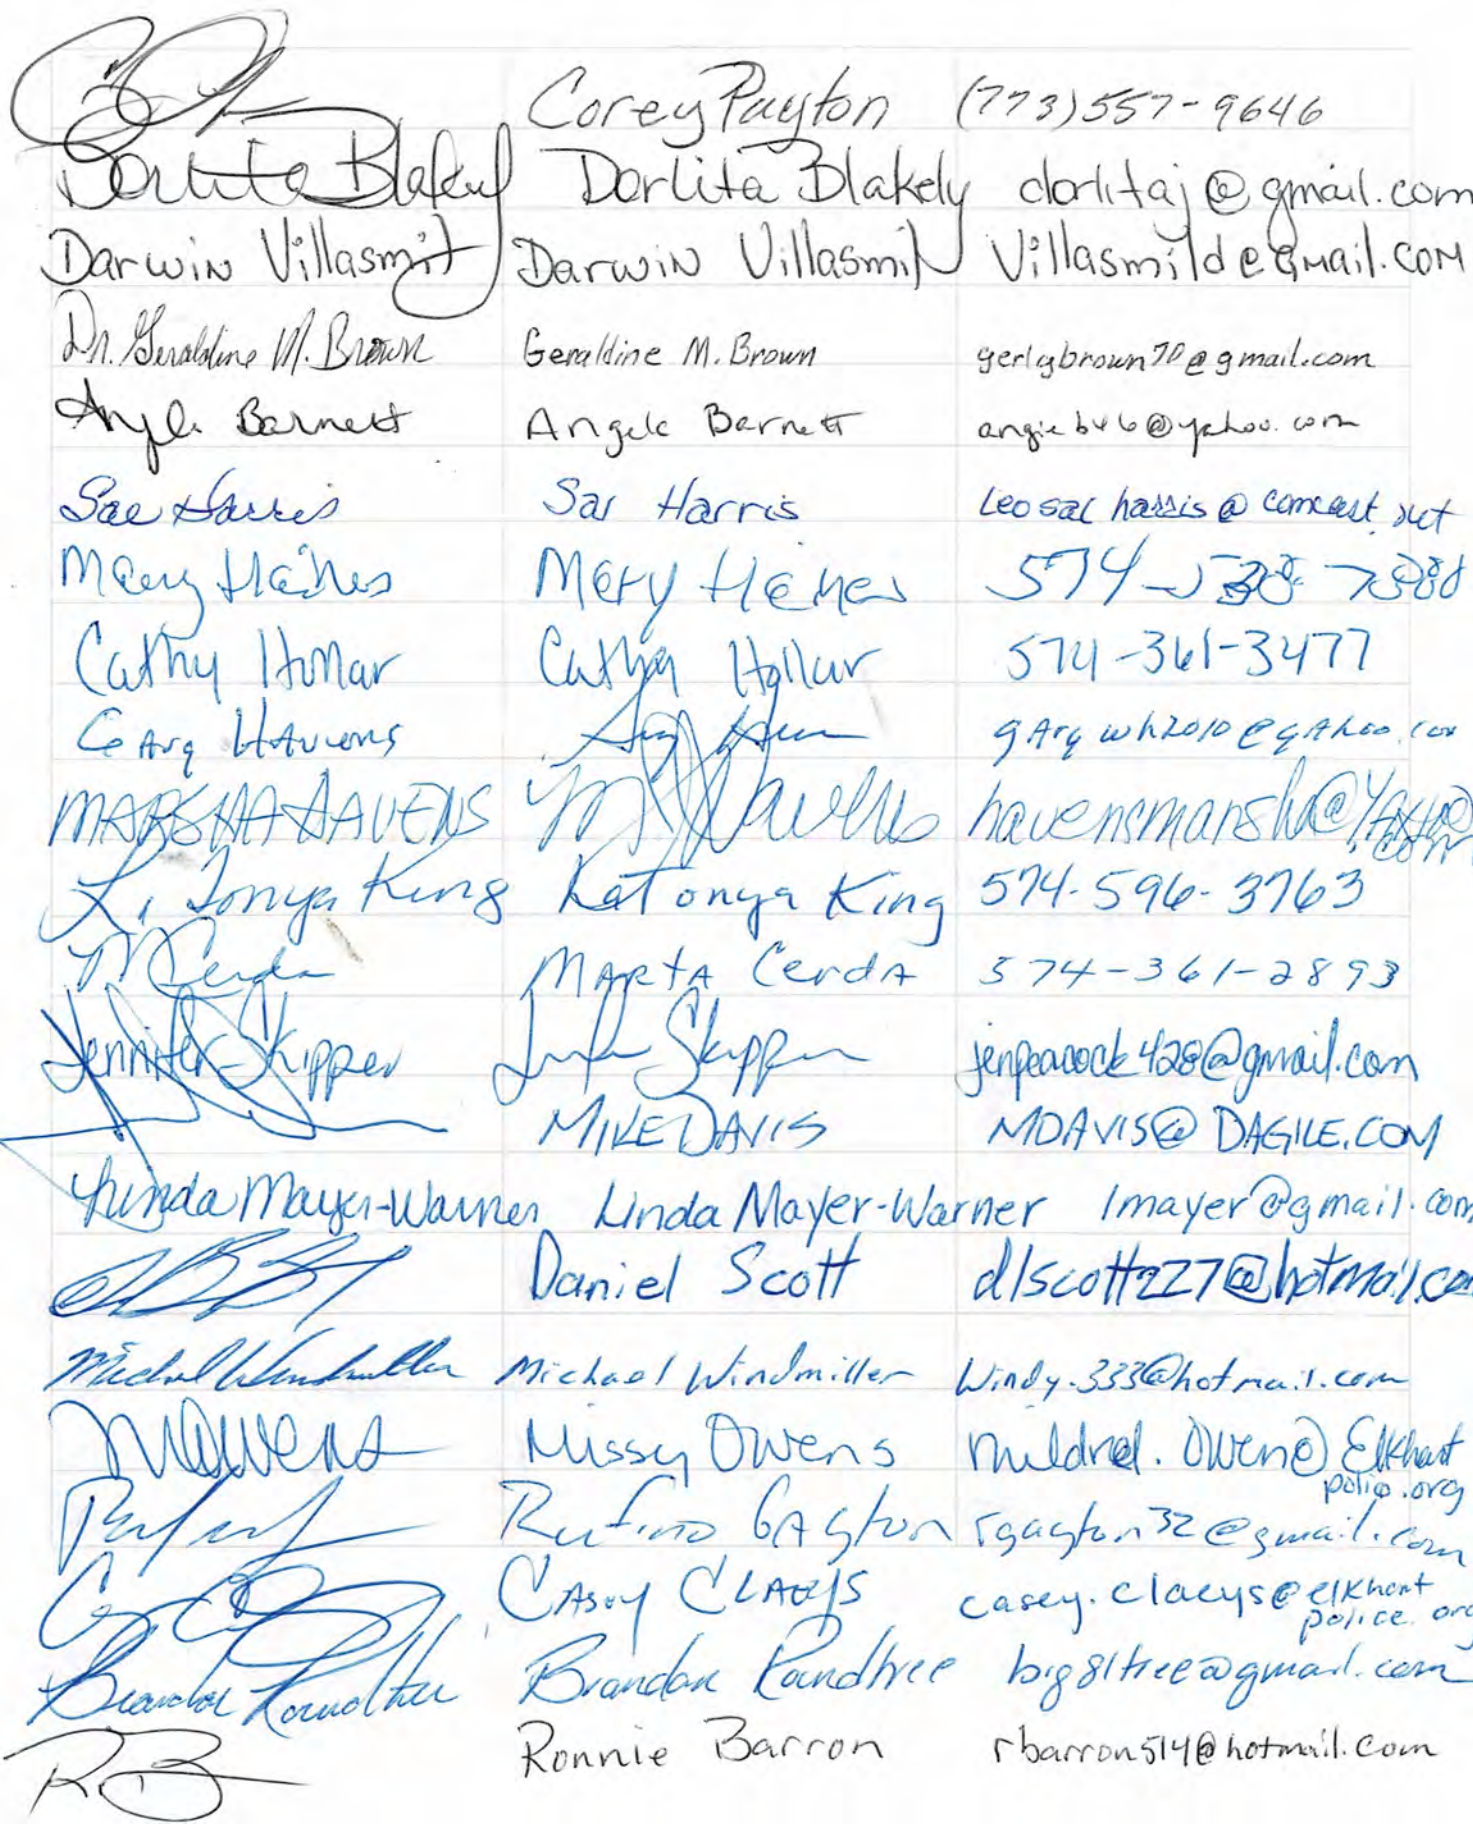 Corey Payton (773)557-9646
Dorlita Blakely Dorlita Blakely dorlitaj@gmail.com
Darwin Villasmil Darwin Villasmil Villasmild@gmail.com
Dr. Geraldine M. Brown Geraldine M. Brown gerlgbrown70@gmail.com
Angela Barnett Angela Barnett angieb46@yahoo.com
Sae Harris Sae Harris leosaeharris@comcast.net
Mary Haines Mary Haines 574-
Cathy Hollar Cathy Hollar 574-361-3477
Gary Havens garywh2010@yahoo.com
MARSHA HAVENS M Havens havensmarsha@Yahoo.com
L. Tonya King LaTonya King 574-596-3763
M Cerda MARTA Cerda 574-361-2893
Jennifer Skipper Jennifer Skipper jenpeacock428@gmail.com
MIKE DAVIS MDAVIS@DAGILE.COM
Linda Mayer-Warner Linda Mayer-Warner lmayer@gmail.com
Daniel Scott dlscott227@hotmail.com
Michael Windmiller Michael Windmiller Windy.333@hotmail.com
MOwens Missy Owens mildred.Owen@Elkhart
polic.org
Rufino Gayton rgayton32@gmail.com
Casey CLAEYS casey.claeys@elkhart
police.org
Brandon Roundtree Brandon Roundtree big81tree@gmail.com
RB Ronnie Barron rbarron514@hotmail.com